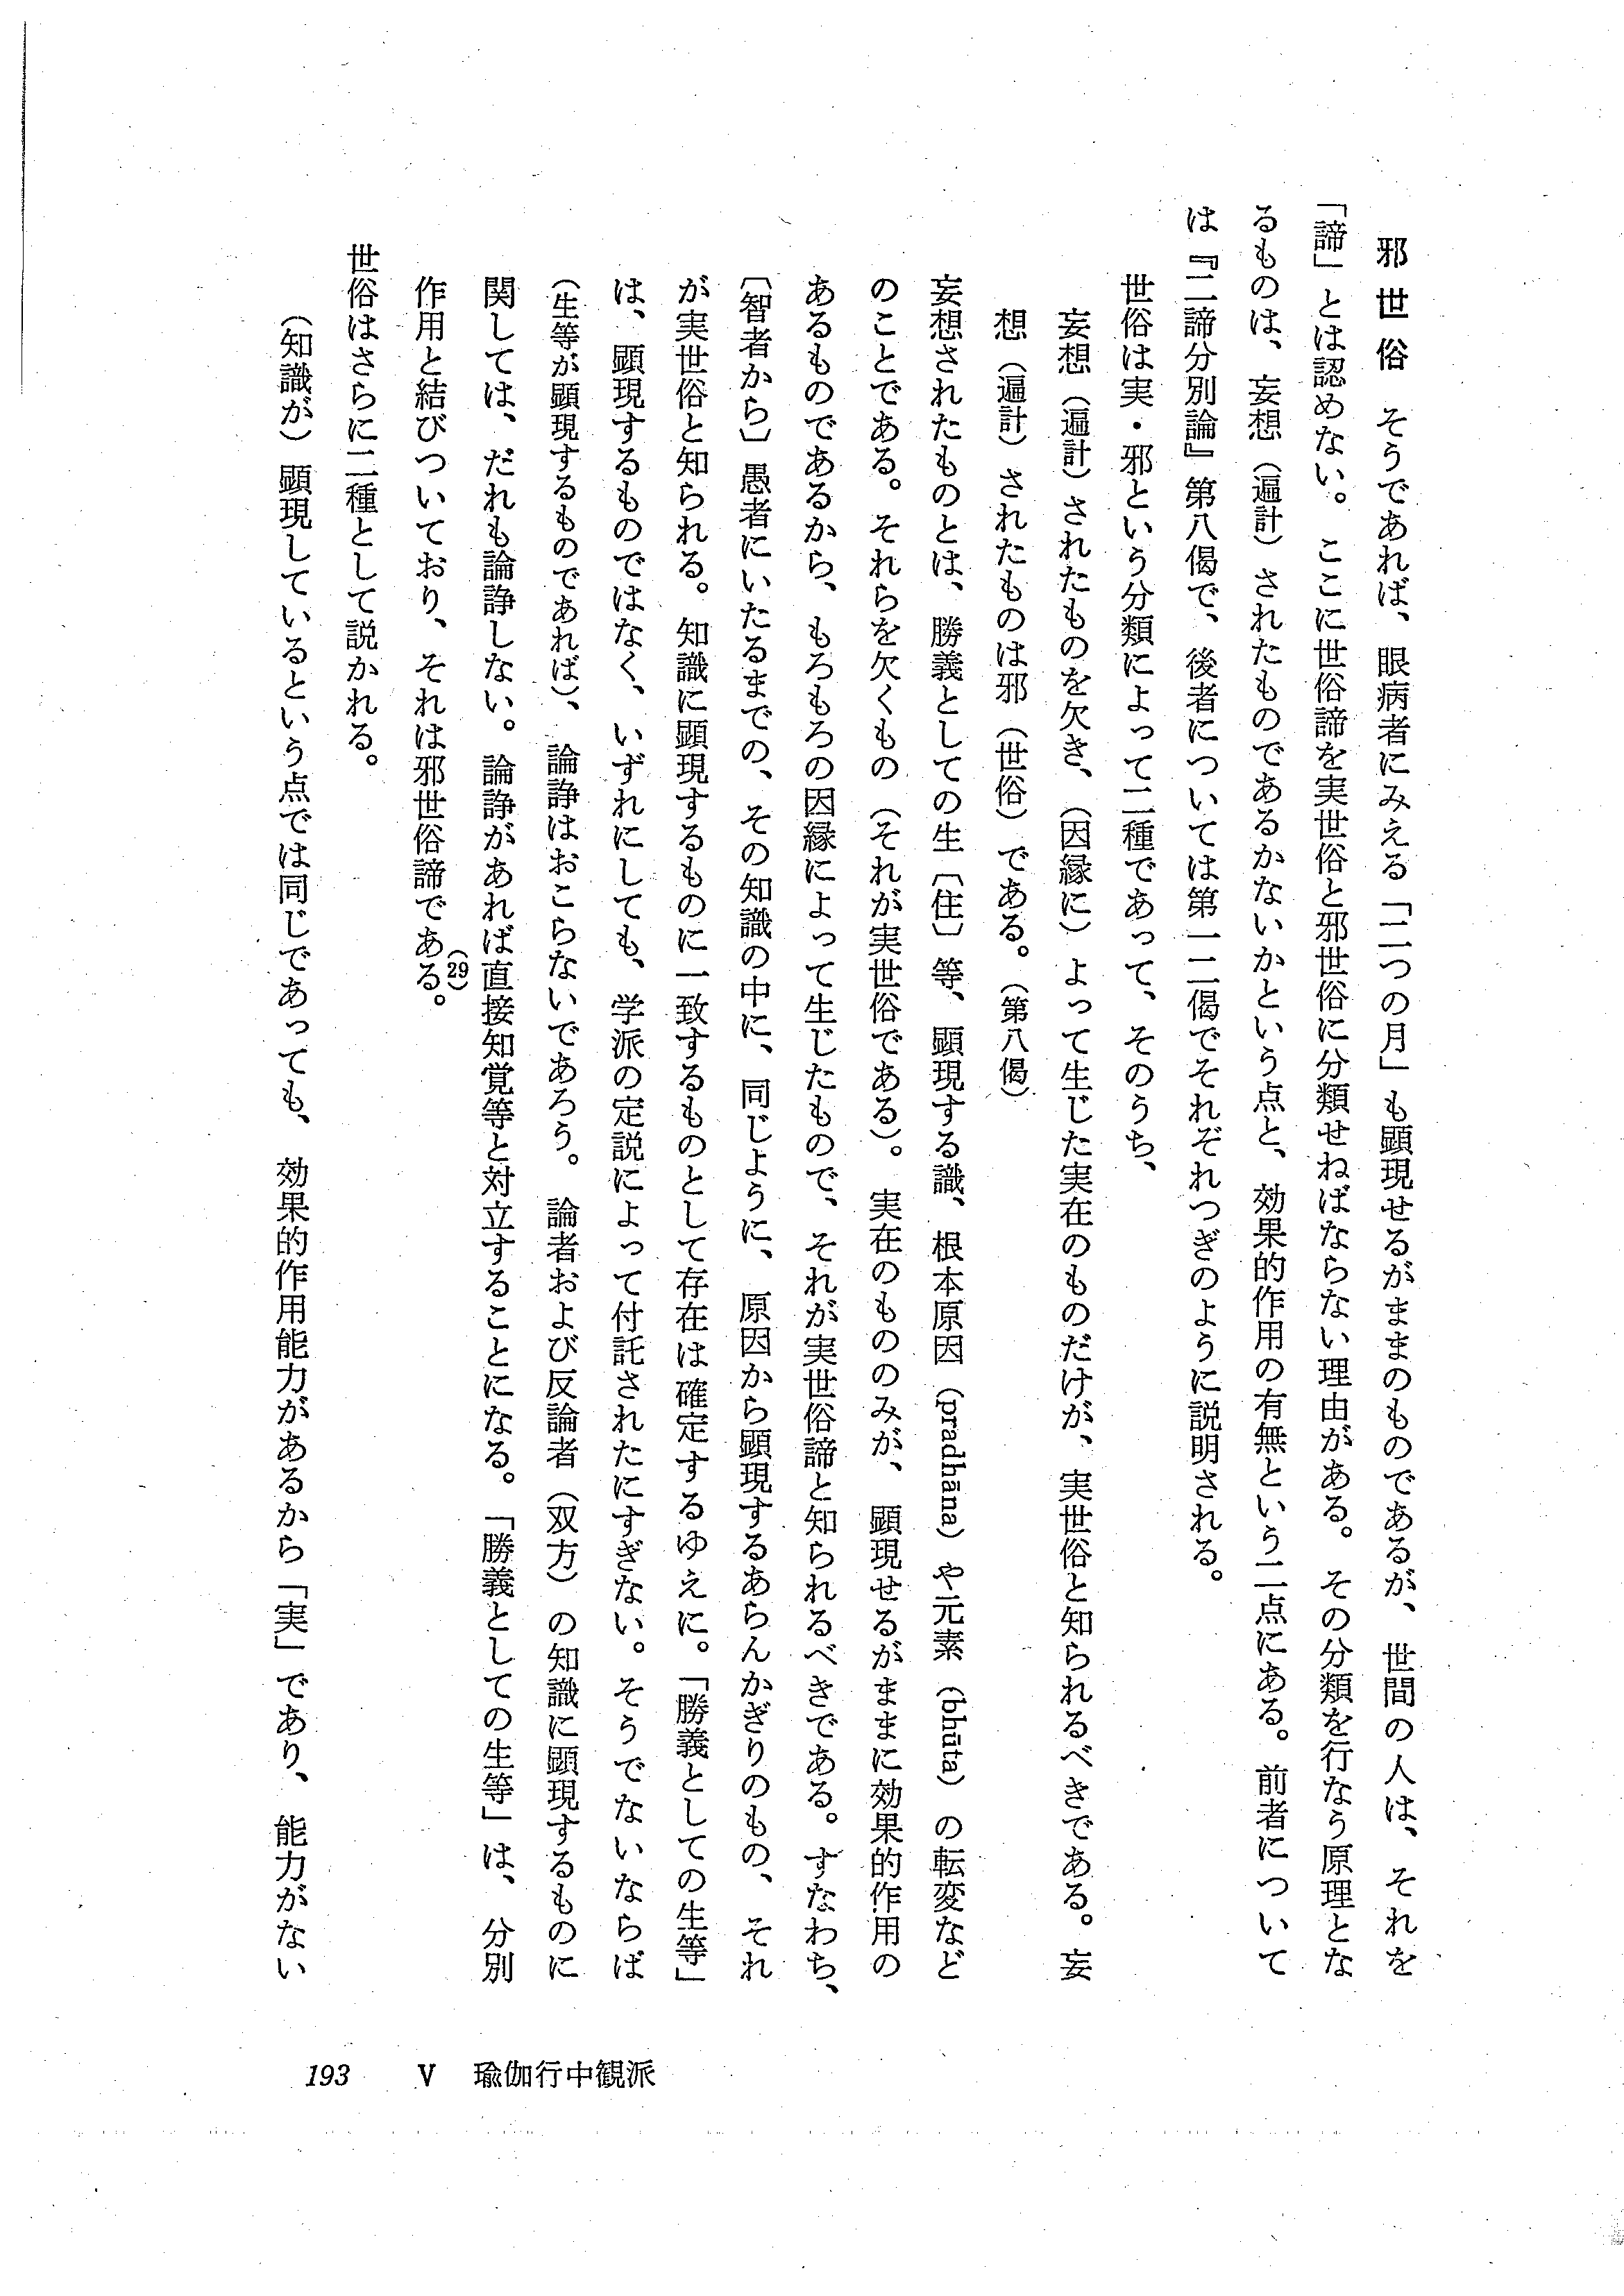 邪世俗　そうであれば、眼病者にみえる「二つの月」も顕現せるがままのものであるが、世間の人は、それを
「諦」とは認めない。ここに世俗諦を実世俗と邪世俗に分類せねばならない理由がある。その分類を行なう原理とな
るものは、妄想（遍計）されたものであるかないかという点と、効果的作用の有無という二点にある。前者について
は『二諦分別論』第八偈で、後者については第一二偈でそれぞれつぎのように説明される。
世俗は実・邪という分類によって二種であって、そのうち、
妄想（遍計）されたものを欠き、（因縁に）よって生じた実在のものだけが、実世俗と知られるべきである。妄
想（遍計）されたものは邪（世俗）である。（第八偈）
妄想されたものとは、勝義としての生〔住〕等、顕現する識、根本原因（pradhāna）や元素（bhūta）の転変など
のことである。それらを欠くもの（それが実世俗である）。実在のもののみが、顕現せるがままに効果的作用の
あるものであるから、もろもろの因縁によって生じたもので、それが実世俗諦と知られるべきである。すなわち、
〔智者から〕愚者にいたるまでの、その知識の中に、同じように、原因から顕現するあらんかぎりのもの、それ
が実世俗と知られる。知識に顕現するものに一致するものとして存在は確定するゆえに。「勝義としての生等」
は、顕現するものではなく、いずれにしても、学派の定説によって付託されたにすぎない。そうでないならば
（生等が顕現するものであれば）、論諍はおこらないであろう。論者および反論者（双方）の知識に顕現するものに
関しては、だれも論諍しない。論諍があれば直接知覚等と対立することになる。「勝義としての生等」は、分別
作用と結びついており、それは邪世俗諦である。(29)
世俗はさらに二種として説かれる。
（知識が）顕現しているという点では同じであっても、効果的作用能力があるから「実」であり、能力がない
193　V　瑜伽行中観派